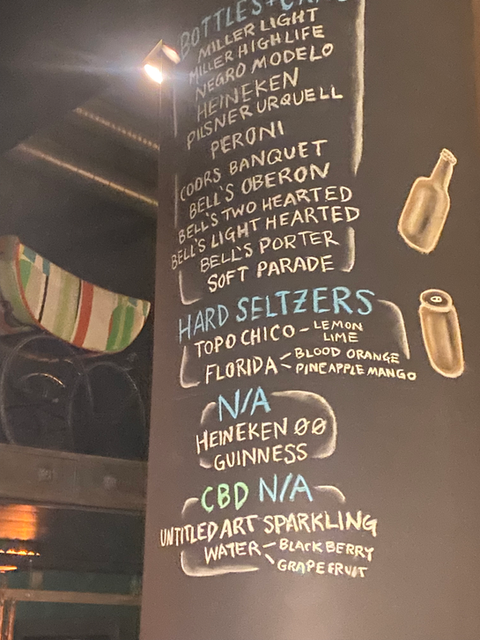 BOTTLES + CANS
MILLER LIGHT
MILLER HIGHLIFE
NEGRO MODELO
HEINEKEN
PILSNER URQUELL
PERONI
COORS BANQUET
BELL'S OBERON
BELL'S TWO HEARTED
BELL'S LIGHT HEARTED
BELL'S PORTER
SOFT PARADE
HARD SELTZERS
TOPO CHICO - LEMON
LIME
FLORIDA - BLOOD ORANGE
- PINEAPPLE MANGO
N/A
HEINEKEN 00
GUINNESS
CBD N/A
UNTITLED ART SPARKLING
WATER - BLACKBERRY
- GRAPEFRUIT